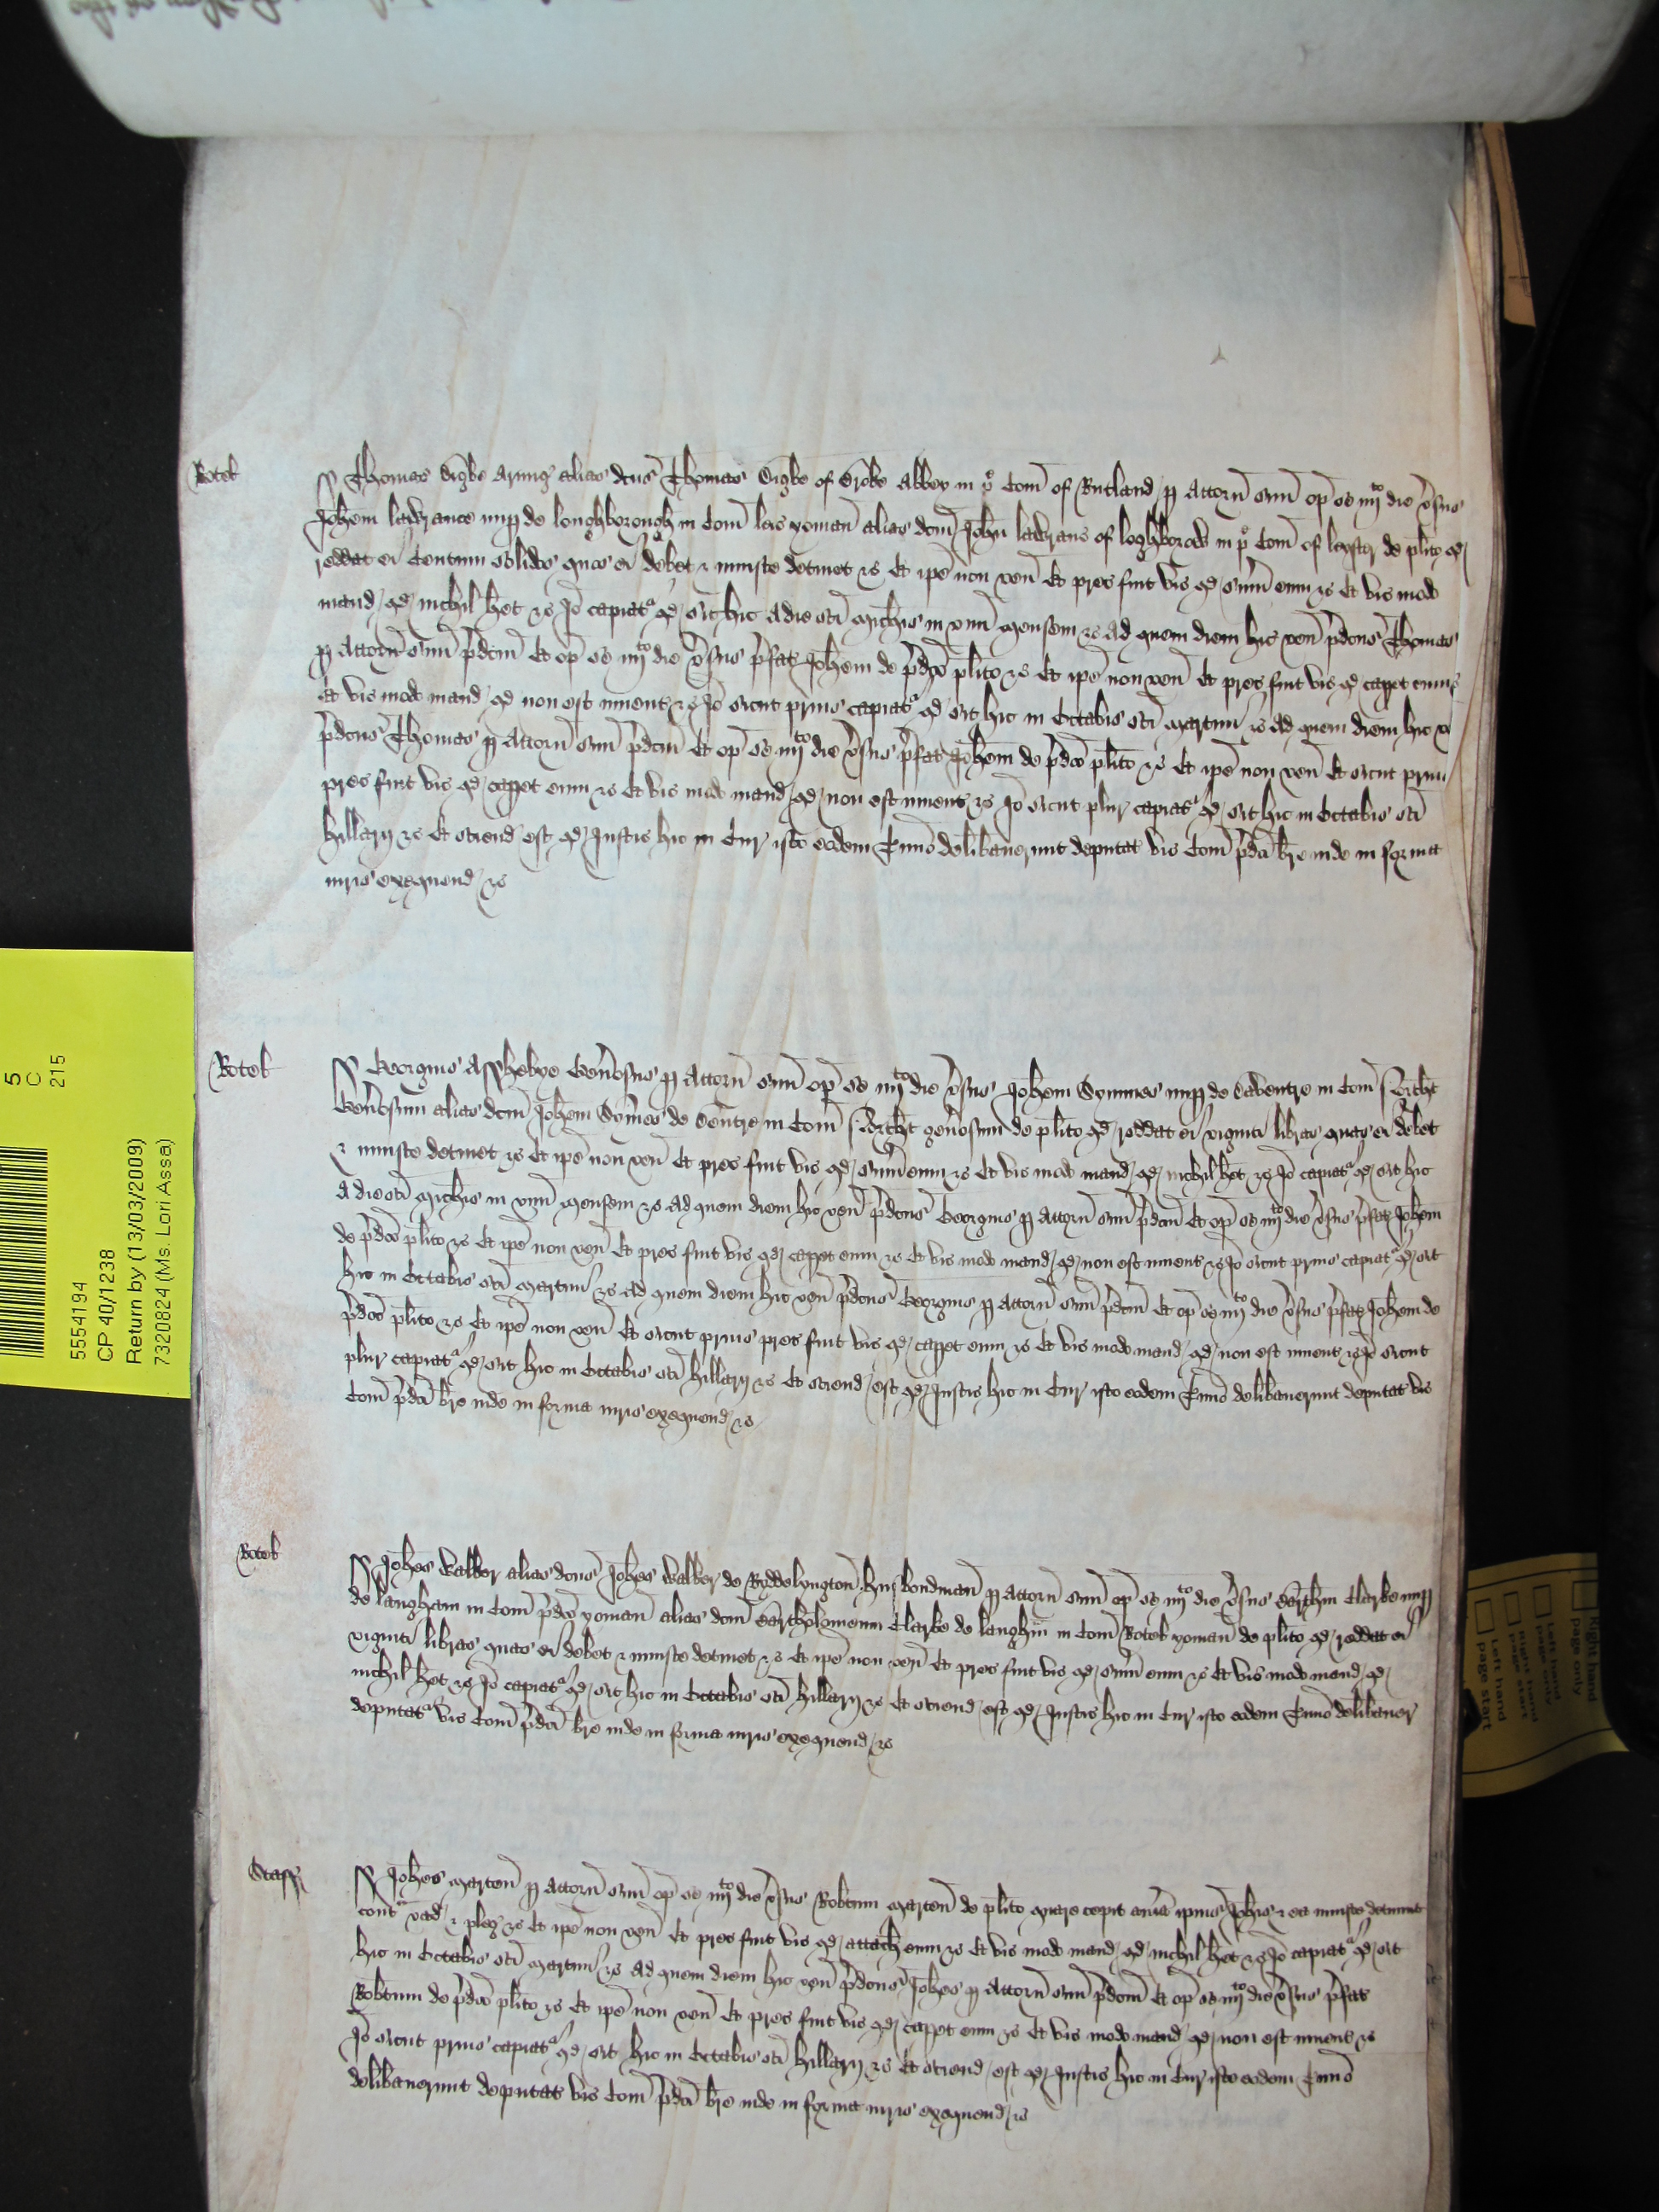 Rotel
Thomas Digbe Armig alias dcus Thomas Digbe of Broke Abbey in þe Com of Rutland p Attorn suu op se iiijto die vsus
Johem lawrance nup de loughborough in Com leic yoman alias dcm John lawrans of loghborow in þe Com of leyster de plito qd
reddat ei Centum solidos quos ei debet & iniuste detinet &c Et ipe non ven Et prec fuit vic qd sum eum &c Et vic modo
mand qd nichil het &c Jo capiat qd sit hic a die sci Michis in vnu Mensem &c Ad quem diem hic ven pdcus Thomas
p Attorn suu pdcm Et op se iiijto die vsus pfat Johem de pdco plito &c Et ipe non ven Et prec fuit vic qd capet eum &c
Et vic modo mand qd non est inuent &c Jo sicut prius capiat qd sit hic in Octabis sci Martini &c Ad quem diem hic v
pdcus Thomas p Attorn suu pdcm Et op se iiijto die vsus pfat Johem de pdco plito &c Et ipe non ven Et sicut priu
prec fuit vic qd capet eum &c Et vic modo mand qd non est inuent &c Jo sicut plur capiat qd sit hic in Octabis sci
hillarij &c Et sciend est qd Justic hic in Cur isto eodem Tmino delibauerunt deputat vic Com pdci bre inde in forma
iuris exequend &c
Rotel
Georgius Asshebye Genosus p Attorn suu op se iiijto die vsus Johem Symmes nup de Daventre in Com Northt
Genosum alias dcm Johem Symes de Dentre in Com Northt genosum de plito qd reddat ei viginti libras quas ei debet
& iniuste detinet &c Et ipe non ven Et prec fuit vic qd sum eum &c Et vic modo mand qd nichil het &c Jo capiat qd sit hic
A die sci Michis in vnu Mensem &c Ad quem diem hic ven pdcus Georgius p Attorn suu pdcm Et op se iiijto die vsus pfat Johem
de pdco plito &c Et ipe non ven Et prec fuit vic qd capet eum &c Et vic modo mand qd non est inuent &c Jo sicut prius capiat qd sit
hic in Octabis sci Martini &c Ad quem diem hic ven pdcus Georgius p Attorn suu pdcm Et op se iiijto die vsus pfat Johem de
pdco plito &c Et ipe non ven Et sicut prius prec fuit vic qd capet eum &c Et vic modo mand qd non est inuent &c Jo sicut
plur capiat qd sit hic in Octabis sci hillarij &c Et sciend est qd Justic hic in Cur isto eodem Tmino delibauerunt deputat vic
Com pdci bre inde in forma iuris exequend &c
Rotel
Johes Walker alias dcus Johes Walker de Ryddelyngton husbondman p Attorn suu op se iiijto die vsus Barthm Clarke nup
de langham in Com pdco yoman alias dcm Bartholomeum Clarke de langhm in Com Rotel yoman de plito qd reddat ei
viginti libras quas ei debet & iniuste detinet &c Et ipe non ven Et prec fuit vic qd sum eum &c Et vic modo mand qd
nichil het &c Jo capiat qd sit hic in Octabis sci hillarij &c Et sciend est qd Justic hic in Cur isto eodem Tmino delibauer
deputat vic Com pdci bre inde in forma iuris exequend &c
Staff
Johes Marton p Attorn suu op se iiijto die vsus Robtum Marton de plito quare cepit auia ipius Johis & ea iniuste detinuit
cont vad & pleg &c Et ipe non ven Et prec fuit vic qd attach eum &c Et vic modo mand qd nichil het &c Jo capiat qd sit
hic in Octabis sci Martini &c Ad quem diem hic ven pdcus Johes p Attorn suu pdcm Et op se iiijto die vsus pfat
Robtum de pdco plito &c Et ipe non ven Et prec fuit vic qd capet eum &c Et vic modo mand qd non est inuent &c
Jo sicut prius capiat qd sit hic in Octabis sci hillarij &c Et sciend est qd Justic hic in Cur isto eodem Tmino
delibauerunt deputat vic Com pdci bre inde in forma iuris exequend &c
5
C
215
5554194
CP 40/1238
Return by (13/03/2009)
7320824 (Ms. Lori Assa)
Right hand
page only
Left hand
page only
Right hand
page start
Left hand
page start